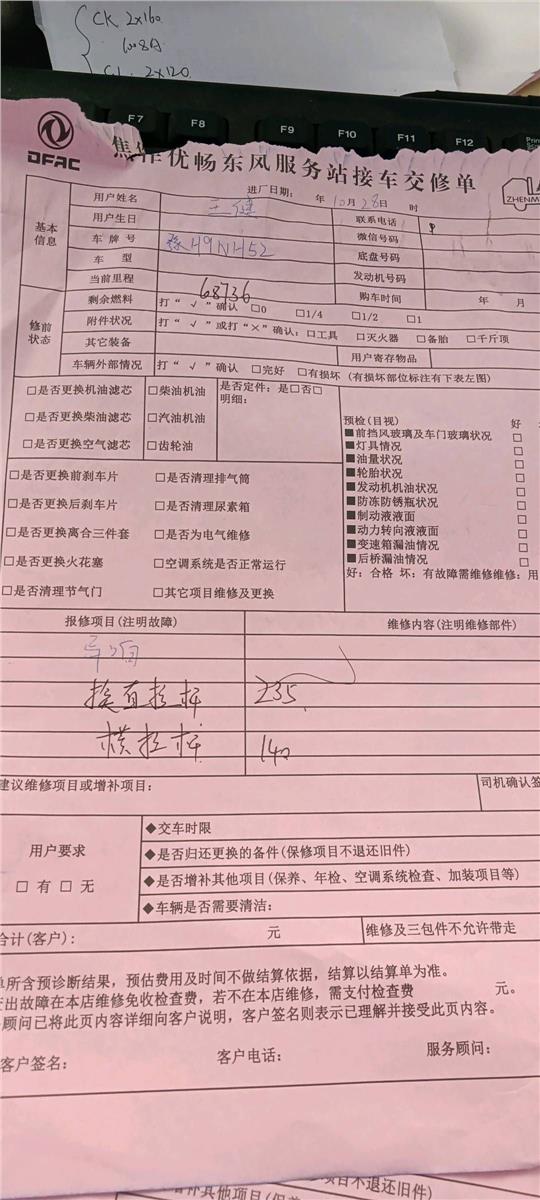 CK 2x160
CL 2x120
F7 F8 F9 F10 F11 F12
DFAC
焦作优畅东风服务站接车交修单
ZHENM
进厂日期: 年 10月 28日 时
基本信息
用户姓名 王健 联系电话
用户生日 微信号码
车牌号 豫H9NH52 底盘号码
车型 发动机号码
当前里程 68736 购车时间 年 月
修前状态
剩余燃料 打“√”确认 □0 □1/4 □1/2 □1
附件状况 打“√”或打“×”确认: □工具 □灭火器 □备胎 □千斤顶
其它装备 用户寄存物品
车辆外部情况 打“√”确认 □完好 □有损坏(有损坏部位标注有下表左图)
□是否更换机油滤芯 □柴油机油 是否定件: 是□否□
明细:
□是否更换柴油滤芯 □汽油机油
□是否更换空气滤芯 □齿轮油
预检(目视) 好
■前挡风玻璃及车门玻璃状况 □
■灯具情况 □
■油量状况 □
■轮胎状况 □
■发动机机油状况 □
■防冻防锈瓶状况 □
■制动液液面 □
■动力转向液液面 □
■变速箱漏油情况 □
■后桥漏油情况 □
好: 合格 坏: 有故障需维修维修: 用
□是否更换前刹车片 □是否清理排气筒
□是否更换后刹车片 □是否清理尿素箱
□是否更换离合三件套 □是否为电气维修
□是否更换火花塞 □空调系统是否正常运行
□是否清理节气门 □其它项目维修及更换
报修项目(注明故障) 维修内容(注明维修部件)
换直拉杆 235
横拉杆 140
建议维修项目或增补项目: 司机确认签
用户要求
□ 有 □ 无
◆交车时限
◆是否归还更换的备件(保修项目不退还旧件)
◆是否增补其他项目(保养、年检、空调系统检查、加装项目等)
◆车辆是否需要清洁:
合计(客户): 元 维修及三包件不允许带走
单所含预诊断结果，预估费用及时间不做结算依据，结算以结算单为准。
出故障在本店维修免收检查费，若不在本店维修，需支付检查费 元。
顾问已将此页内容详细向客户说明，客户签名则表示已理解并接受此页内容。
客户签名: 客户电话: 服务顾问:
项目不退还旧件)
增补其他项目(保养